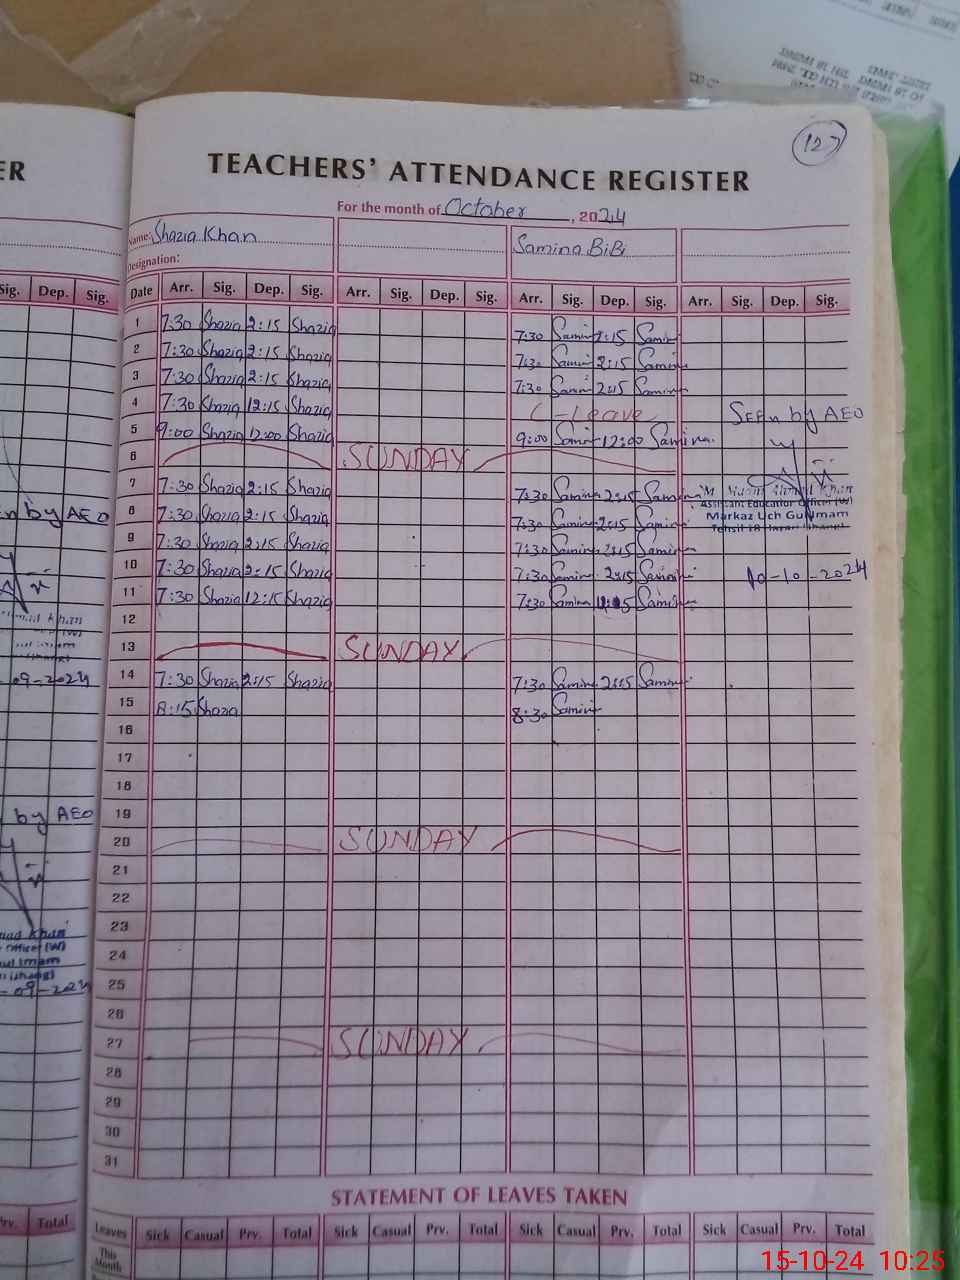 127
TEACHERS' ATTENDANCE REGISTER
For the month of October, 2024
Name: Shazia Khan
Samina BiBi
Designation:
Date Arr. Sig. Dep. Sig. Arr. Sig. Dep. Sig. Arr. Sig. Dep. Sig. Arr. Sig. Dep. Sig.
1 7:30 Shazia 2:15 Shazia 7:30 Samin 2:15 Samin
2 7:30 Shazia 2:15 Shazia 7:30 Samin 2:15 Samin
3 7:30 Shazia 2:15 Shazia 7:30 Samin 2:15 Samin
4 7:30 Shazia 12:15 Shazia C-leave Seen by AEO
5 9:00 Shazia 12:00 Shazia 9:00 Samin 12:00 Samina
6 SUNDAY
7 7:30 Shazia 2:15 Shazia 7:30 Samina 2:15 Samina
Khan
Assistant Education Officer (W)
8 7:30 Shazia 2:15 Shazia 7:30 Samina 2:15 Samina
Markaz Uch Gul Imam
9 7:30 Shazia 2:15 Shazia 7:30 Samina 2:15 Samina
10 7:30 Shazia 2:15 Shazia 7:30 Samina 2:15 Samina 10-10-2024
11 7:30 Shazia 12:15 Shazia 7:30 Samina Samina
12
13 SUNDAY
14 7:30 Shazia 2:15 Shazia 7:30 Samina 2:15 Samina
15 8:15 Shazia 8:30 Samina
16
17
18
19
20 SUNDAY
21
22
23
24
25
26
27 SUNDAY
28
29
30
31
STATEMENT OF LEAVES TAKEN
Leaves Sick Casual Prv. Total Sick Casual Prv. Total Sick Casual Prv. Total Sick Casual Prv. Total
This Month
ER
Sig. Dep. Sig.
by AEO
-09-2024
by AEO
Officer (W)
-09-2024
Prv. Total
15-10-24 10:25